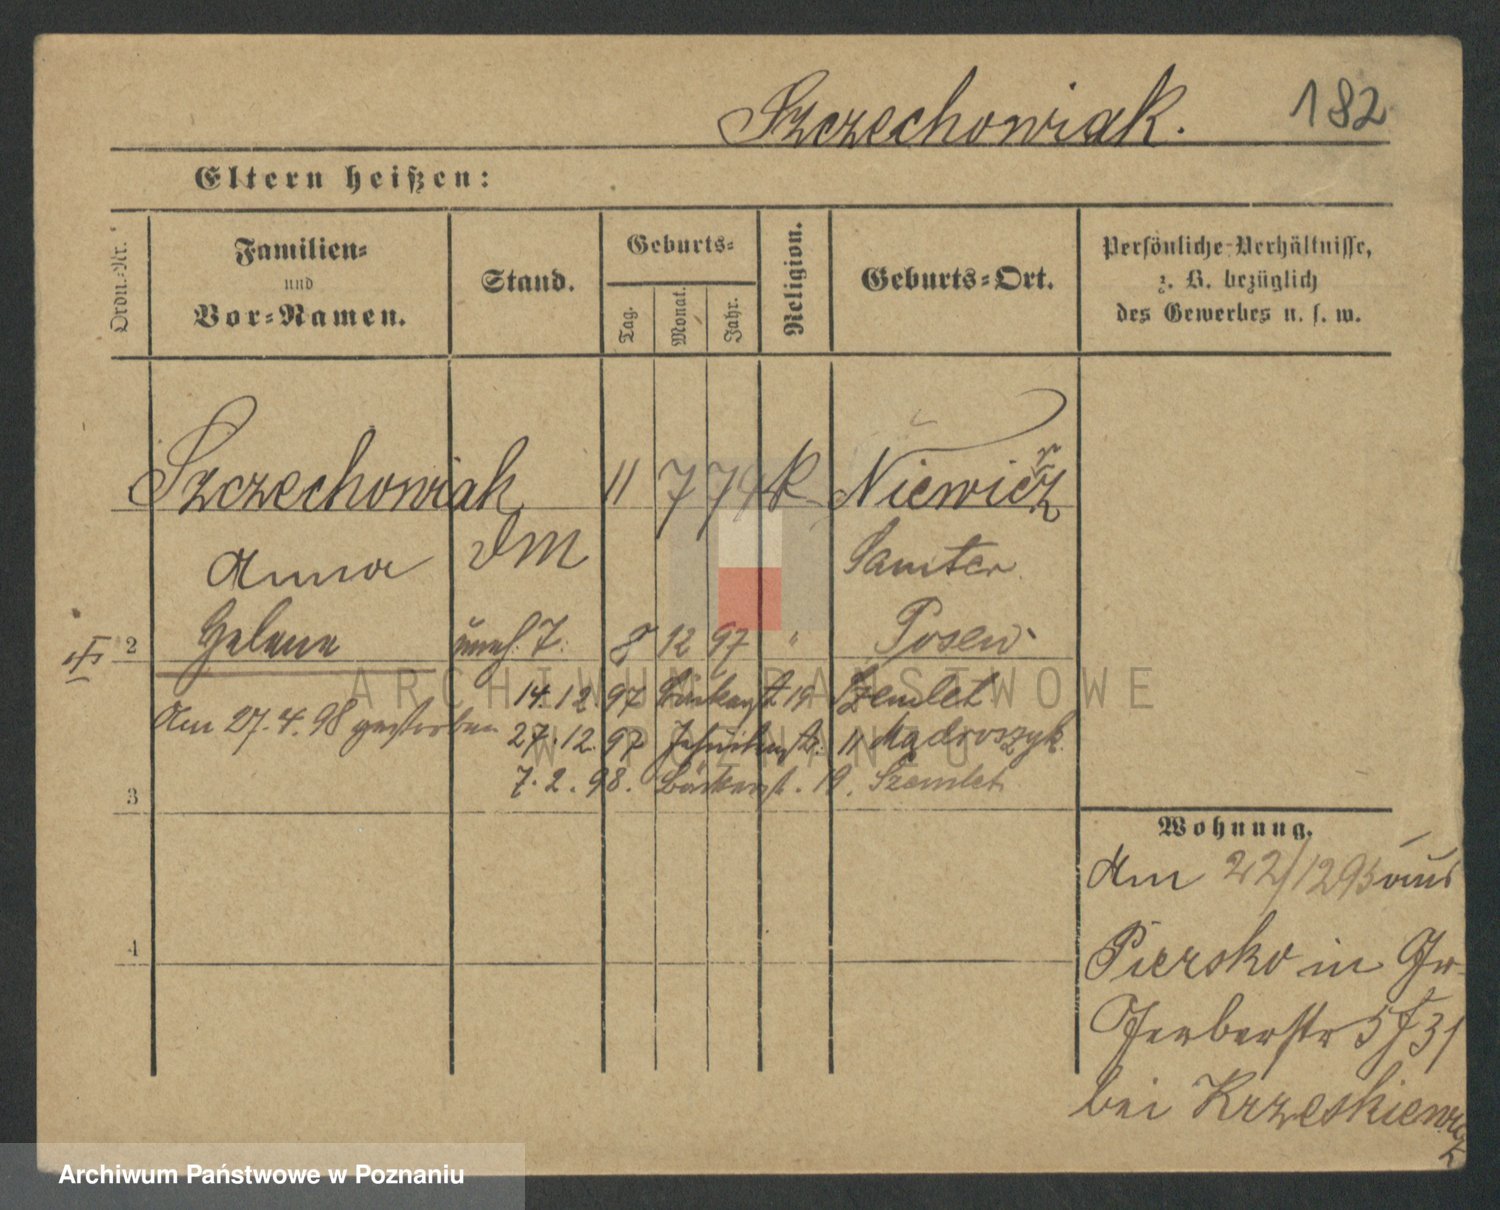 Szczechowiak. 182
Eltern heißen:
Ordn.-Nr. Familien- und Vor-Namen. Stand. Geburts- Tag. Monat. Jahr. Religion. Geburts-Ort. Persönliche Verhältnisse, z. B. bezüglich des Gewerbes u. s. w.
Szczechowiak 11 7 74 k Niewierz
Anna DM Samter
2 Helene unehl. T. 8 12 97 " Posen
14.12 97 Bäckerst 19 Szemlet
Am 27.4.98 gestorben
27.12.97 Jesuitenstr. 11 Mądroszyk
7.2.98. Bäckerst. 19. Szemlet
3
Wohnung.
Am 22/12 95 aus
4 Piersko in Gr
Gerberstr 31
bei Krzeskiewicz
ARCHIWUM PAŃSTWOWE
W POZNANIU
Archiwum Państwowe w Poznaniu